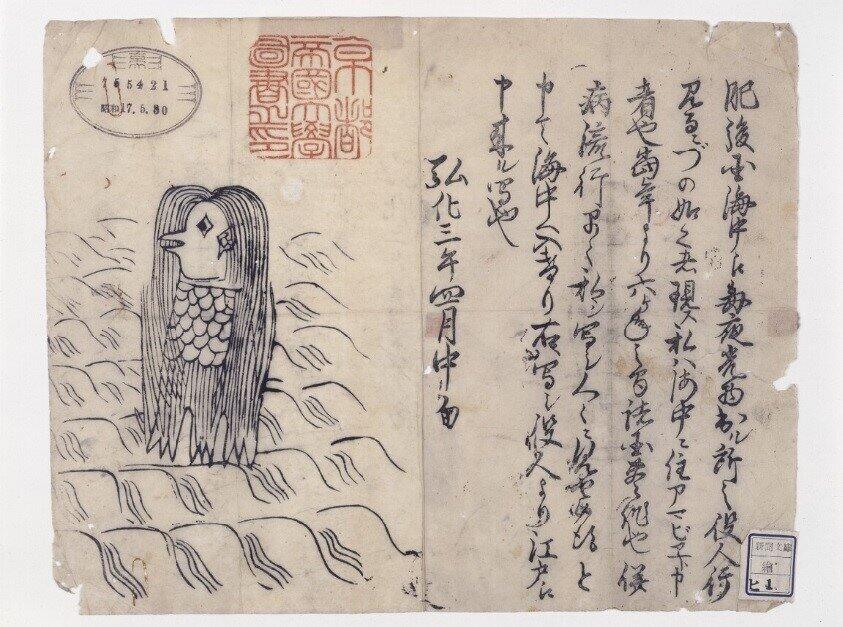 肥後国海中え毎夜光物出ル所之役人行
見るニづの如く者現ス私ハ海中ニ住アマビヱト申
者也当年より六ケ年之間諸国豊作也併
病流行早々私シ写シ人々ニ見せ候得と
申て海中へ入けり右写シ役人より江戸え
申来ル写也
弘化三年四月中旬
京都
帝國大學
圖書之印
155421
昭和17.5.30
新聞文庫
繪
ヒ1